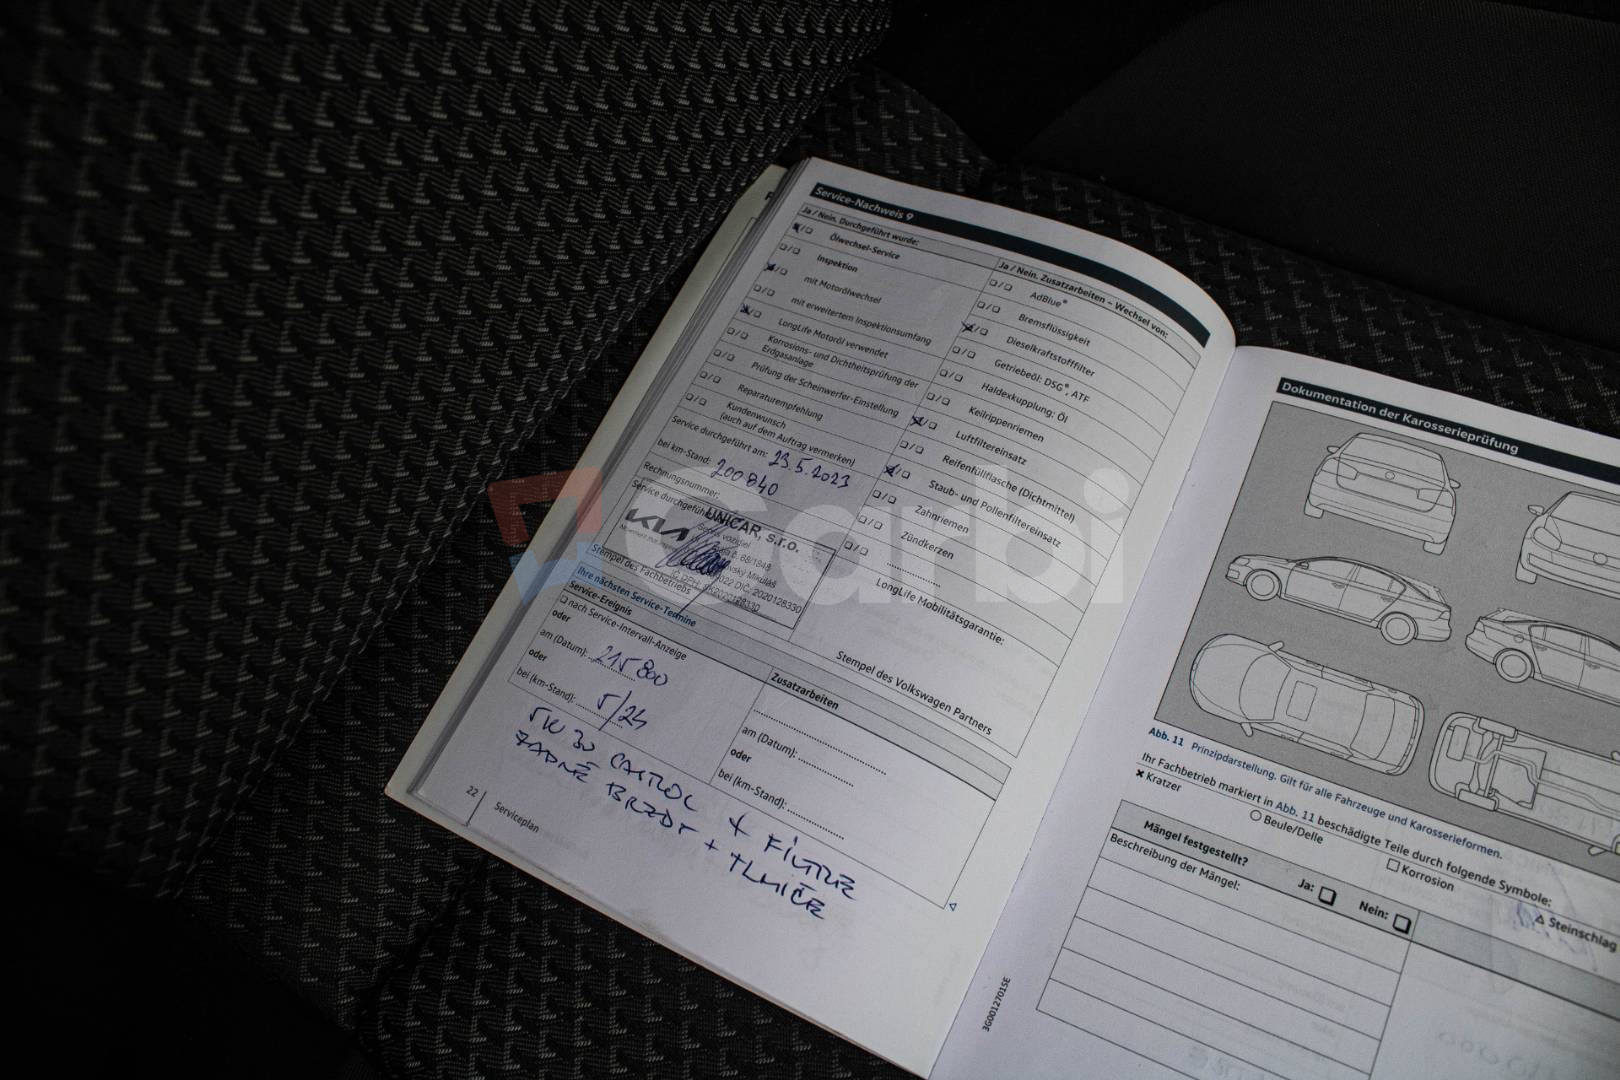 Service-Nachweis 9
Ja / Nein. Durchgeführt wurde:
Ölwechsel-Service
Inspektion
mit Motorölwechsel
mit erweitertem Inspektionsumfang
LongLife Motoröl verwendet
Korrosions- und Dichtheitsprüfung der
Erdgasanlage
Prüfung der Scheinwerfer-Einstellung
Reparaturempfehlung
Kundenwunsch
(auch auf dem Auftrag vermerken)
Service durchgeführt am: 23.5.2023
bei km-Stand: 200 840
Rechnungsnummer:
Service durchgeführt
KIA
UNICAR, s.r.o.
DIČ: 2020128330
Stempel des Fachbetriebs
Ihre nächsten Service-Termine
Service-Ereignis
nach Service-Intervall-Anzeige
oder
am (Datum): 215 800
oder
bei (km-Stand): 5/24
5W 30 CASTROL + FILTRE
ZADNÉ BRZDY + TLMIČE
22
Serviceplan
Ja / Nein. Zusatzarbeiten – Wechsel von:
AdBlue®
Bremsflüssigkeit
Dieselkraftstofffilter
Getriebeöl: DSG®, ATF
Haldexkupplung: Öl
Keilrippenriemen
Luftfiltereinsatz
Reifenfüllflasche (Dichtmittel)
Staub- und Pollenfiltereinsatz
Zahnriemen
Zündkerzen
LongLife Mobilitätsgarantie:
Stempel des Volkswagen Partners
Zusatzarbeiten
am (Datum):
oder
bei (km-Stand):
Garbi
Dokumentation der Karosserieprüfung
Abb. 11 Prinzipdarstellung. Gilt für alle Fahrzeuge und Karosserieformen.
Ihr Fachbetrieb markiert in Abb. 11 beschädigte Teile durch folgende Symbole:
Kratzer
Beule/Delle
Korrosion
Steinschlag
Mängel festgestellt?
Ja:
Nein:
Beschreibung der Mängel:
3G0012701SE